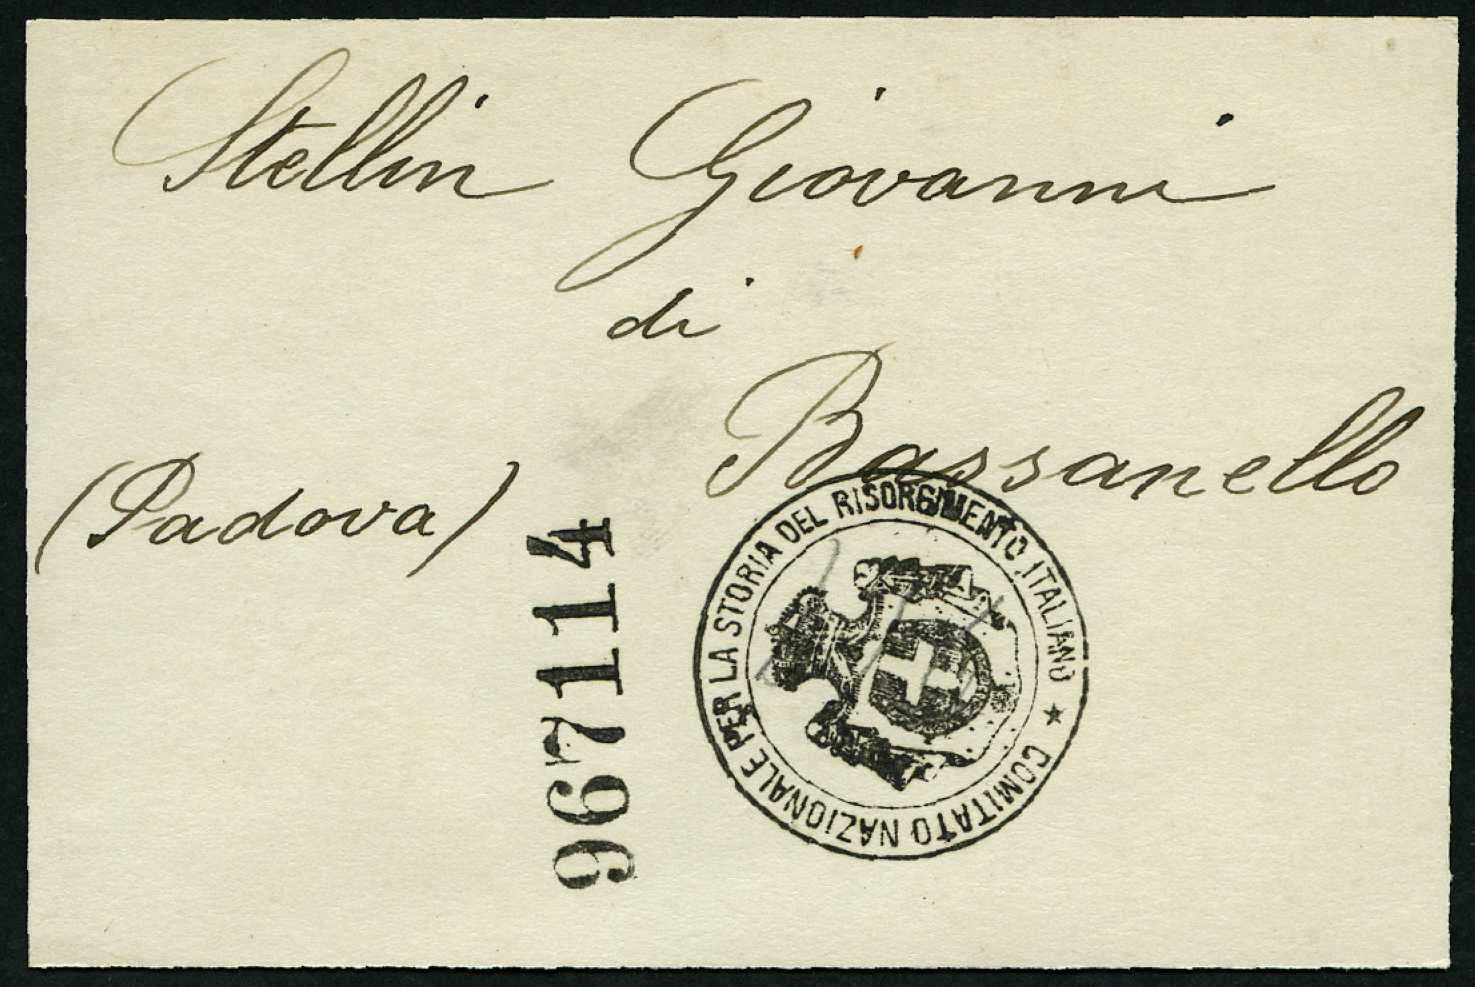 Stellin Giovanni
di
Bassanello
(Padova)
967114
COMITATO NAZIONALE PER LA STORIA DEL RISORGIMENTO ITALIANO ★